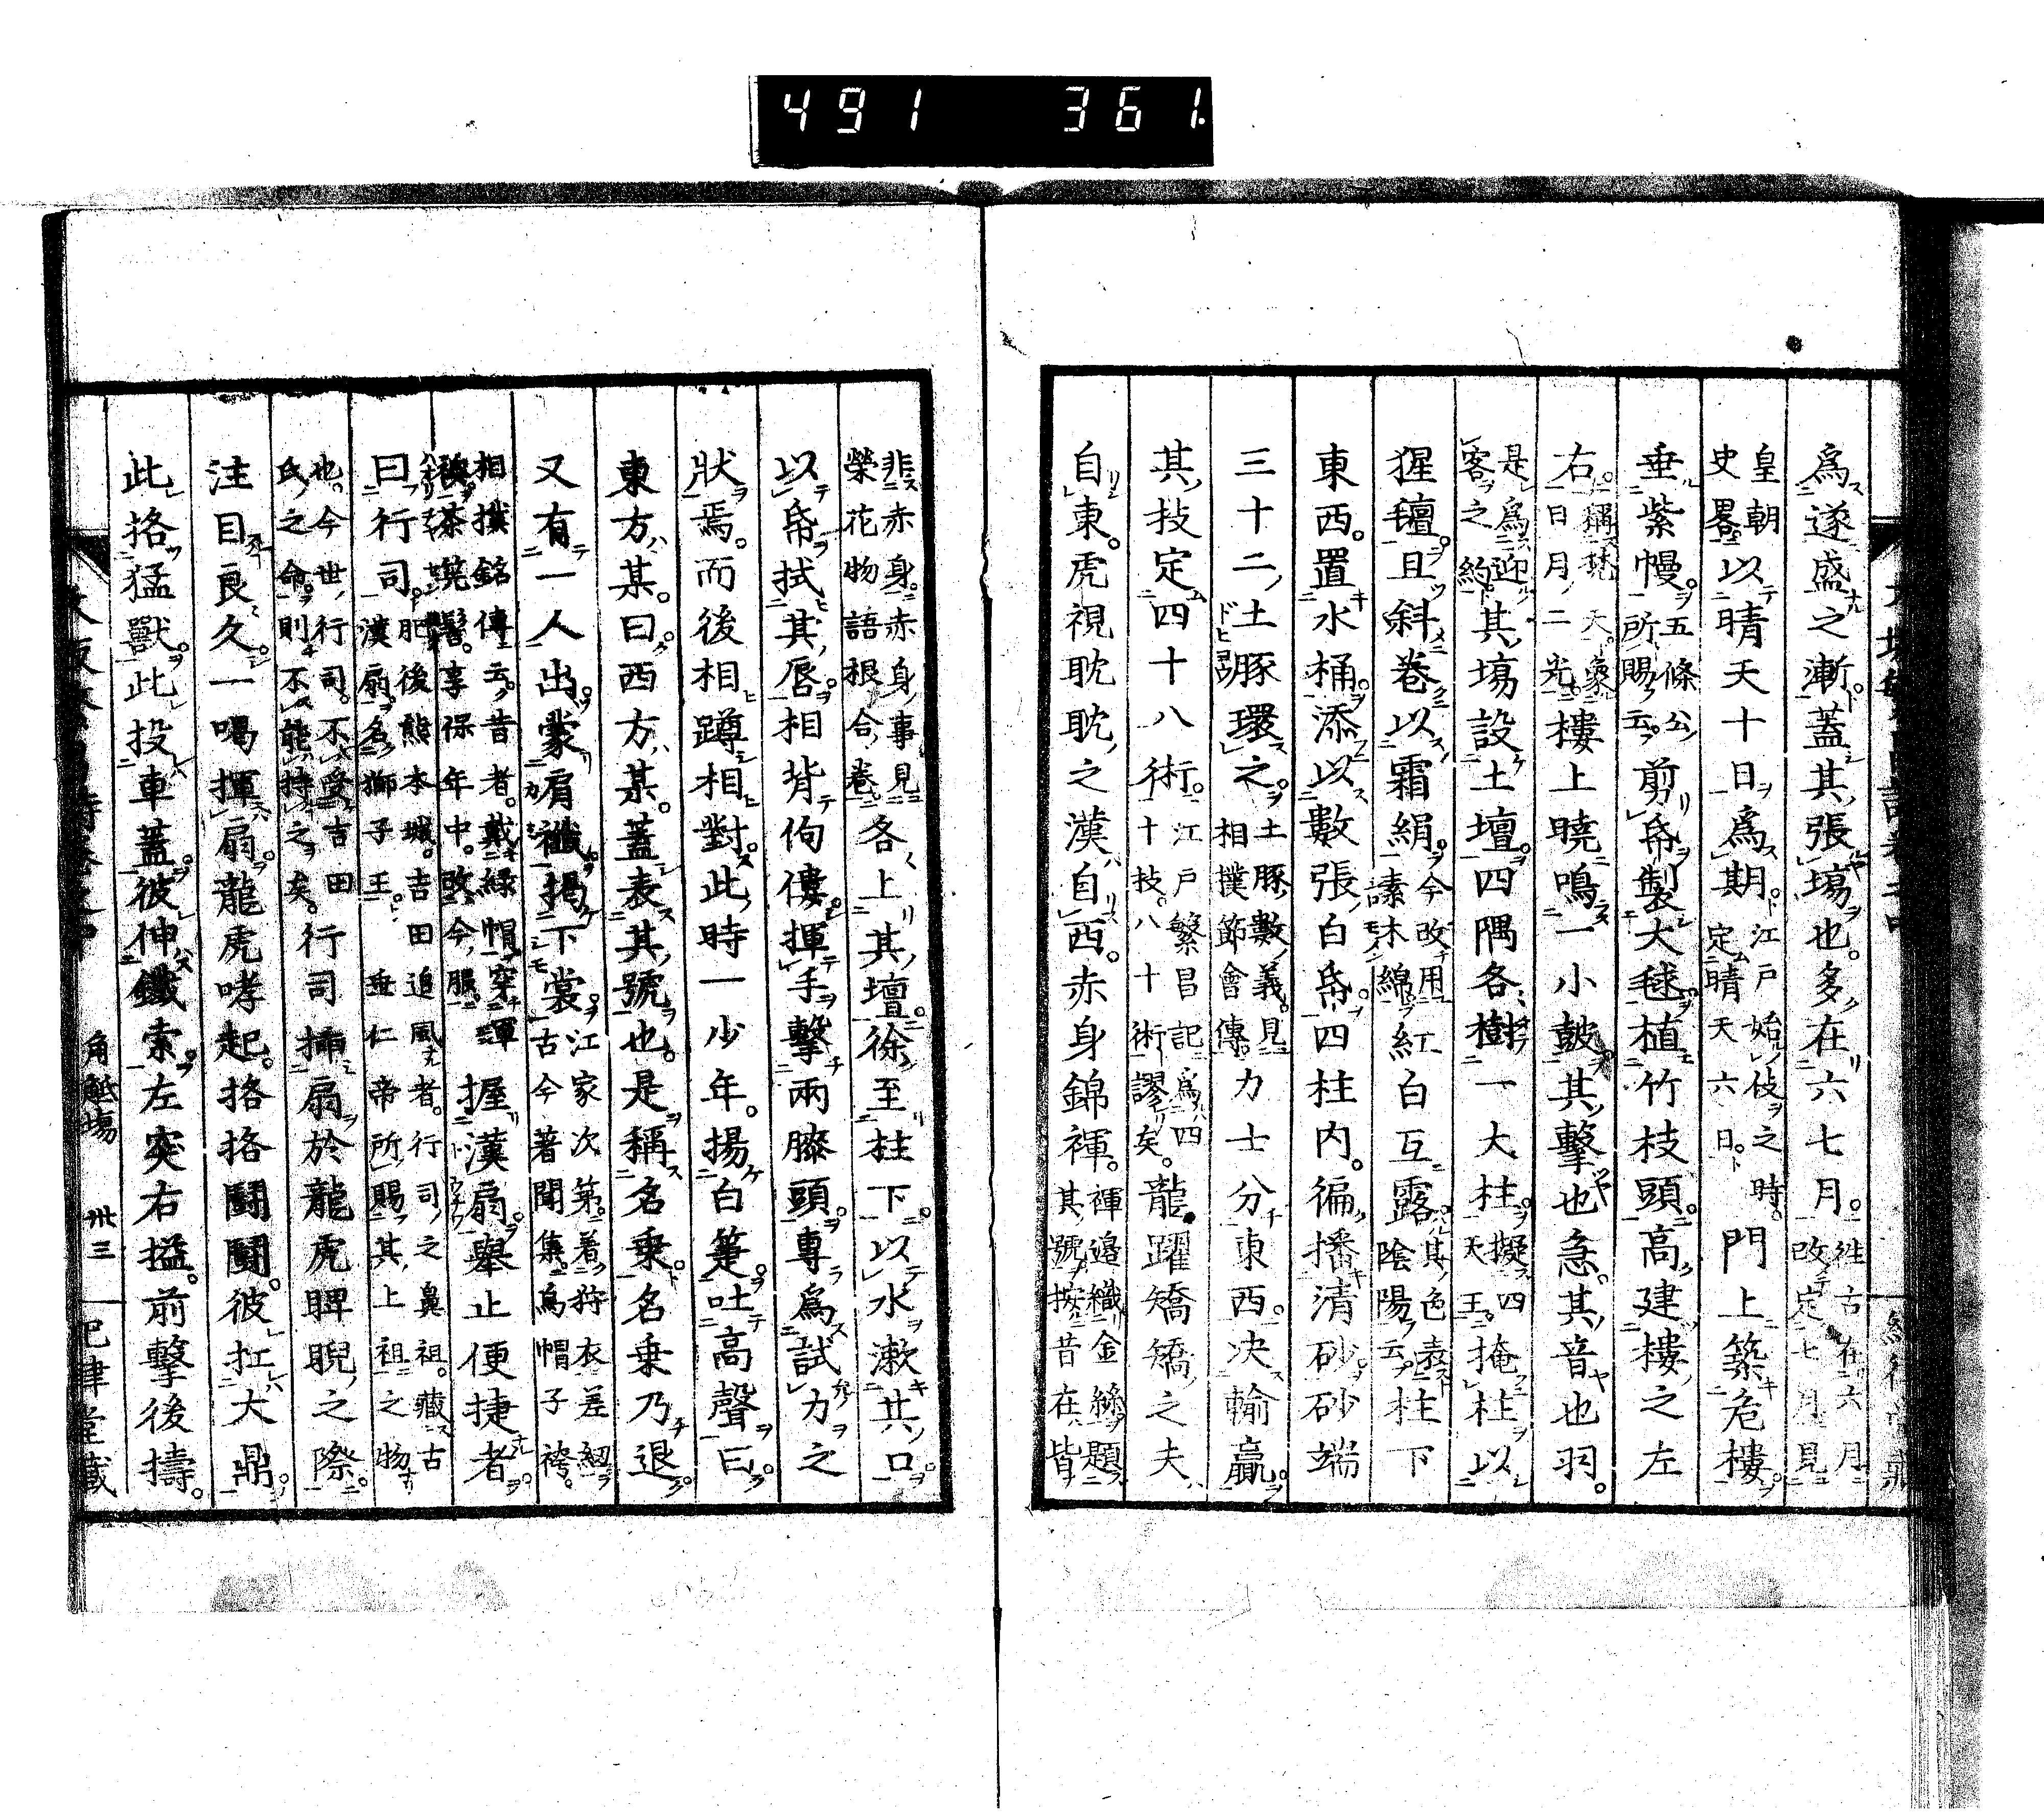 491 361.
爲遂盛之漸蓋其張塲也多在六七月。往古在六月改定七月見
皇朝史畧以晴天十日爲期。江戸始伎之時。定晴天六日。門上築危樓
垂紫幔。五條公所賜云。剪帋製大毬植竹枝頭。高建樓之左
右。稱梵天。象日月二光。樓上曉鳴一小皷其擊也急。其音也羽。
是爲迎客之約。其塲設土壇。四隅各樹一大柱。擬四天王。掩柱以
猩氊。且斜卷以霜絹。今改用素木綿紅白互露。其色表陰陽云。柱下
東西。置水桶。添以數張白帋。四柱内。徧播清砂。砂端
三十二土豚環之。土豚數義。見相撲節會傳。力士分東西。決輸贏
其技定四十八術。江戸繁昌記爲四十技。八十術謬矣。龍躍矯矯之夫
自東。虎視耽耽之漢自西。赤身錦褌。褌邉織金絲題其號。按昔在皆
非赤身。赤身事見榮花物語根合卷各上其壇。徐至柱下。以水漱其口
以帋拭其唇。相背佝僂揮手擊兩膝頭。專爲試力之
狀焉。而後相蹲相對。此時一少年。揚白箑。吐高聲曰
東方某。曰西方某。蓋表其號也。是稱名乘。名乘乃退
又有一人出。蒙肩襳揭下裳。江家次第。着狩衣差紐古今著聞集。烏帽子袴。
相撲銘傳云。昔者。戴緑帽穿渾茶筅髻。享保年中。改今服。握漢扇。舉止便捷者
曰行司。肥後熊本城。吉田追風者。行司之鼻祖。藏古漢扇。名獅子王。垂仁帝所賜其上祖之物
也。今世行司。不受吉田氏之命。則不能持之矣。行司插扇於龍虎睥睨之際。
注目良久。一喝揮扇。龍虎哮起。挌挌鬪鬪。彼扛大鼎
此挌猛獸。此投車蓋。彼伸鐵索。左突右搤。前擊後擣。
角觝塲 卅三